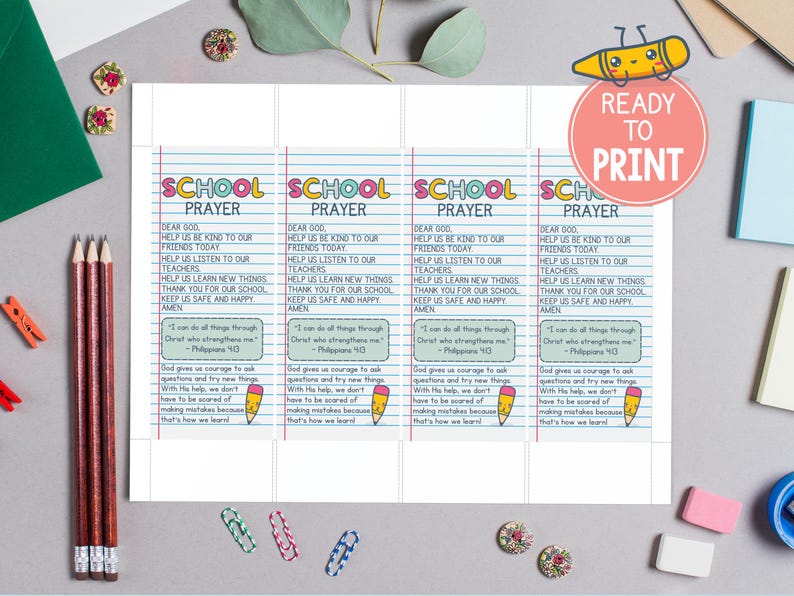 READY
TO
PRINT
SCHOOL
PRAYER
DEAR GOD,
HELP US BE KIND TO OUR
FRIENDS TODAY.
HELP US LISTEN TO OUR
TEACHERS.
HELP US LEARN NEW THINGS.
THANK YOU FOR OUR SCHOOL.
KEEP US SAFE AND HAPPY.
AMEN.
"I can do all things through
Christ who strengthens me."
~ Philippians 4:13
God gives us courage to ask
questions and try new things.
With His help, we don't
have to be scared of
making mistakes because
that's how we learn!
SCHOOL
PRAYER
DEAR GOD,
HELP US BE KIND TO OUR
FRIENDS TODAY.
HELP US LISTEN TO OUR
TEACHERS.
HELP US LEARN NEW THINGS.
THANK YOU FOR OUR SCHOOL.
KEEP US SAFE AND HAPPY.
AMEN.
"I can do all things through
Christ who strengthens me."
~ Philippians 4:13
God gives us courage to ask
questions and try new things.
With His help, we don't
have to be scared of
making mistakes because
that's how we learn!
SCHOOL
PRAYER
DEAR GOD,
HELP US BE KIND TO OUR
FRIENDS TODAY.
HELP US LISTEN TO OUR
TEACHERS.
HELP US LEARN NEW THINGS.
THANK YOU FOR OUR SCHOOL.
KEEP US SAFE AND HAPPY.
AMEN.
"I can do all things through
Christ who strengthens me."
~ Philippians 4:13
God gives us courage to ask
questions and try new things.
With His help, we don't
have to be scared of
making mistakes because
that's how we learn!
SCHOOL
PRAYER
DEAR GOD,
HELP US BE KIND TO OUR
FRIENDS TODAY.
HELP US LISTEN TO OUR
TEACHERS.
HELP US LEARN NEW THINGS.
THANK YOU FOR OUR SCHOOL.
KEEP US SAFE AND HAPPY.
AMEN.
"I can do all things through
Christ who strengthens me."
~ Philippians 4:13
God gives us courage to ask
questions and try new things.
With His help, we don't
have to be scared of
making mistakes because
that's how we learn!